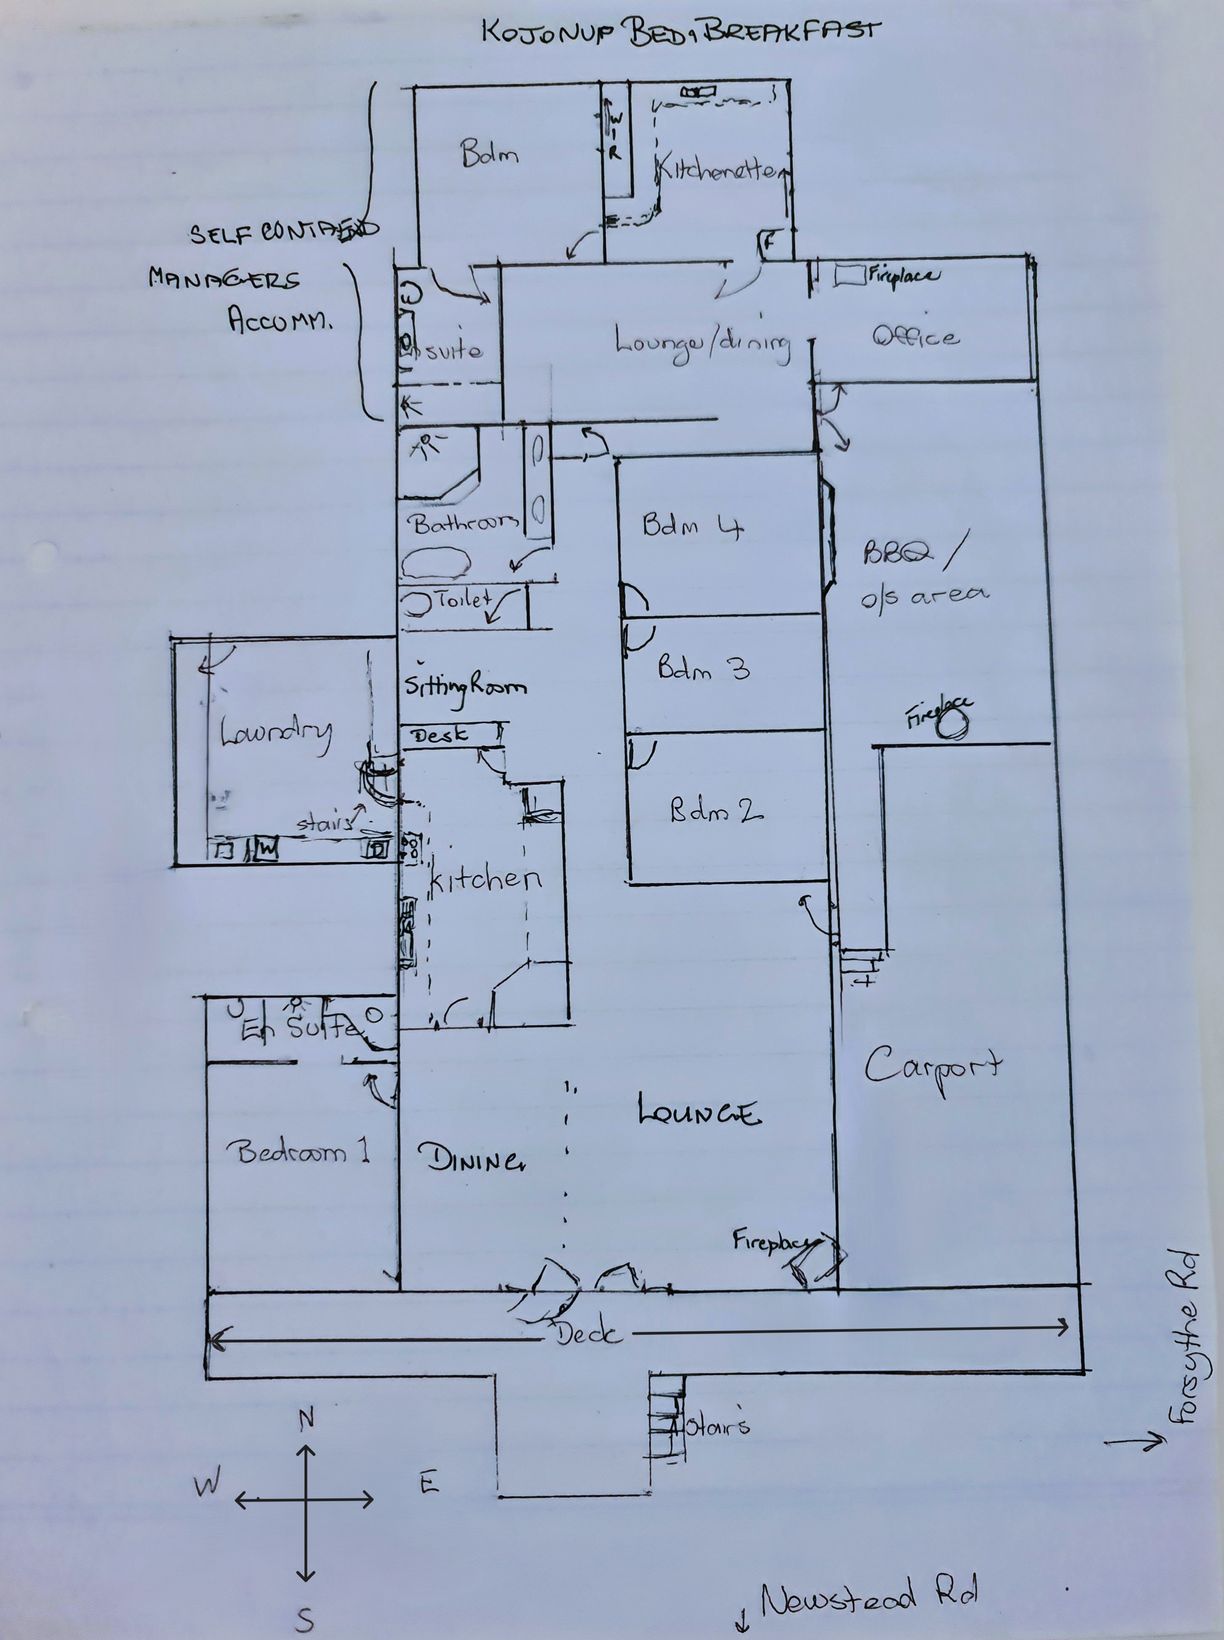 KOJONUP BED & BREAKFAST
Bdm
W-R
Kitchenette
F
SELF CONTAINED
MANAGERS
ACCOMM.
Ensuite
Lounge/dining
Fireplace
Office
Bathroom
Toilet
Bdm 4
BBQ /
o/s area
Sitting Room
Bdm 3
Fireplace
Laundry
Desk
Bdm 2
stairs
W
Kitchen
En Suite
Carport
LOUNGE
Bedroom 1
DINING
Fireplace
Deck
Stairs
Forsythe Rd
N
W
E
S
Newstead Rd